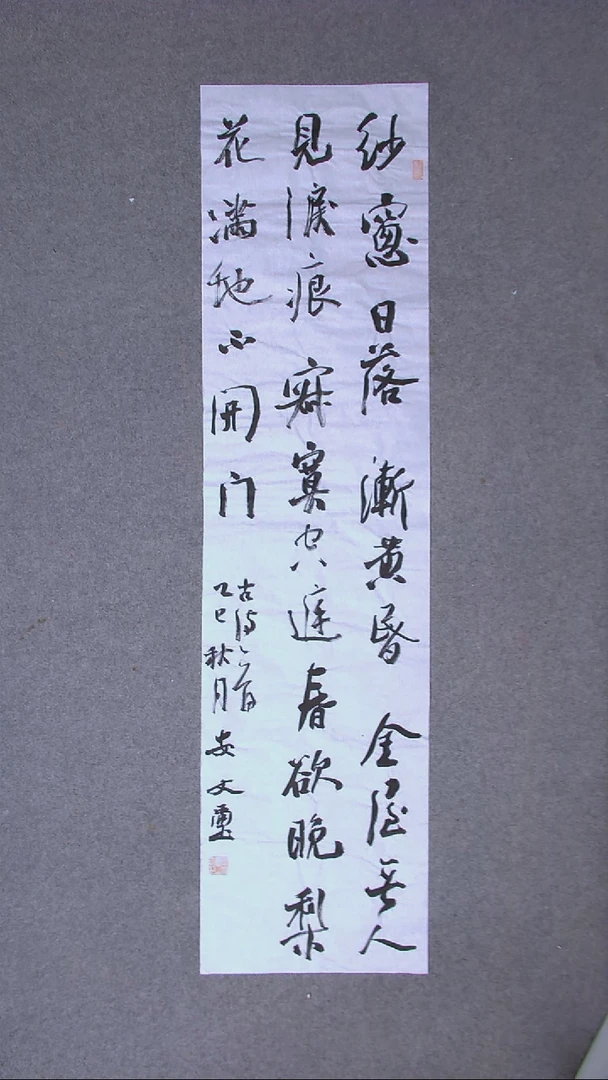 纱窻日落漸黄昏金屋無人
見淚痕寂寞空庭春欲晚梨
花滿地不開门
古诗一首
乙巳秋月安文